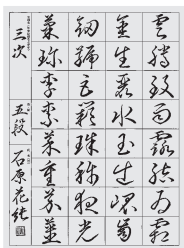 雲騰致雨露結為霜
金生麗水玉出崑岡
劔號巨闕珠稱夜光
菓珍李柰菜重芥薑
三次 五段 石原花純